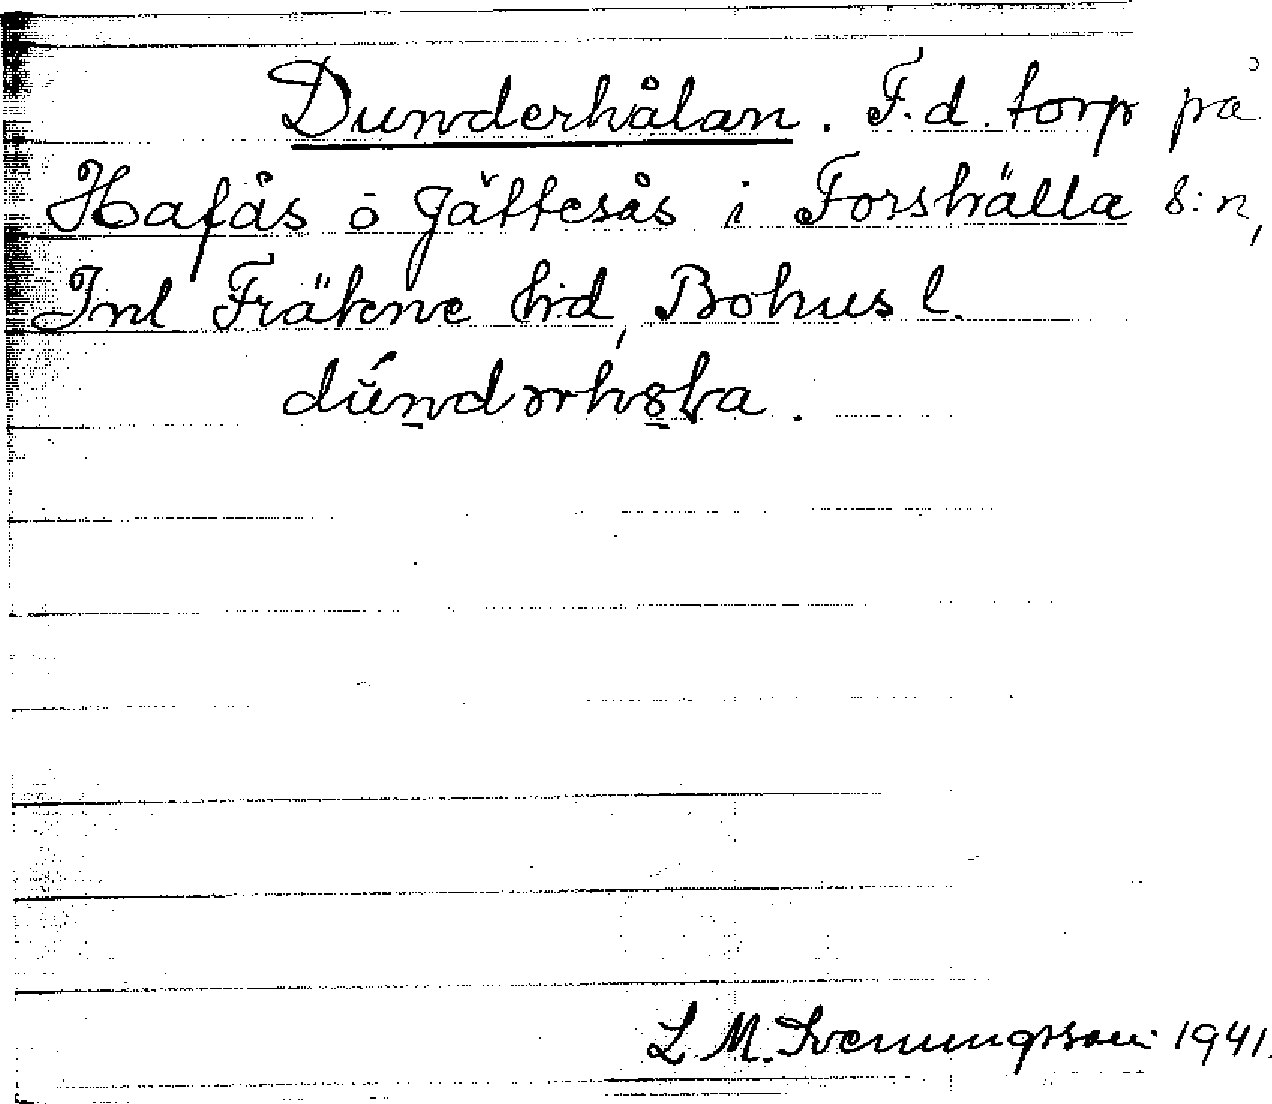 Dunderhålan. F.d. torp på
Hafås o Jättesås i Forshälla s:n,
Inl Fräkne hd, Bohus l.
L M. Svenungsson 1941.